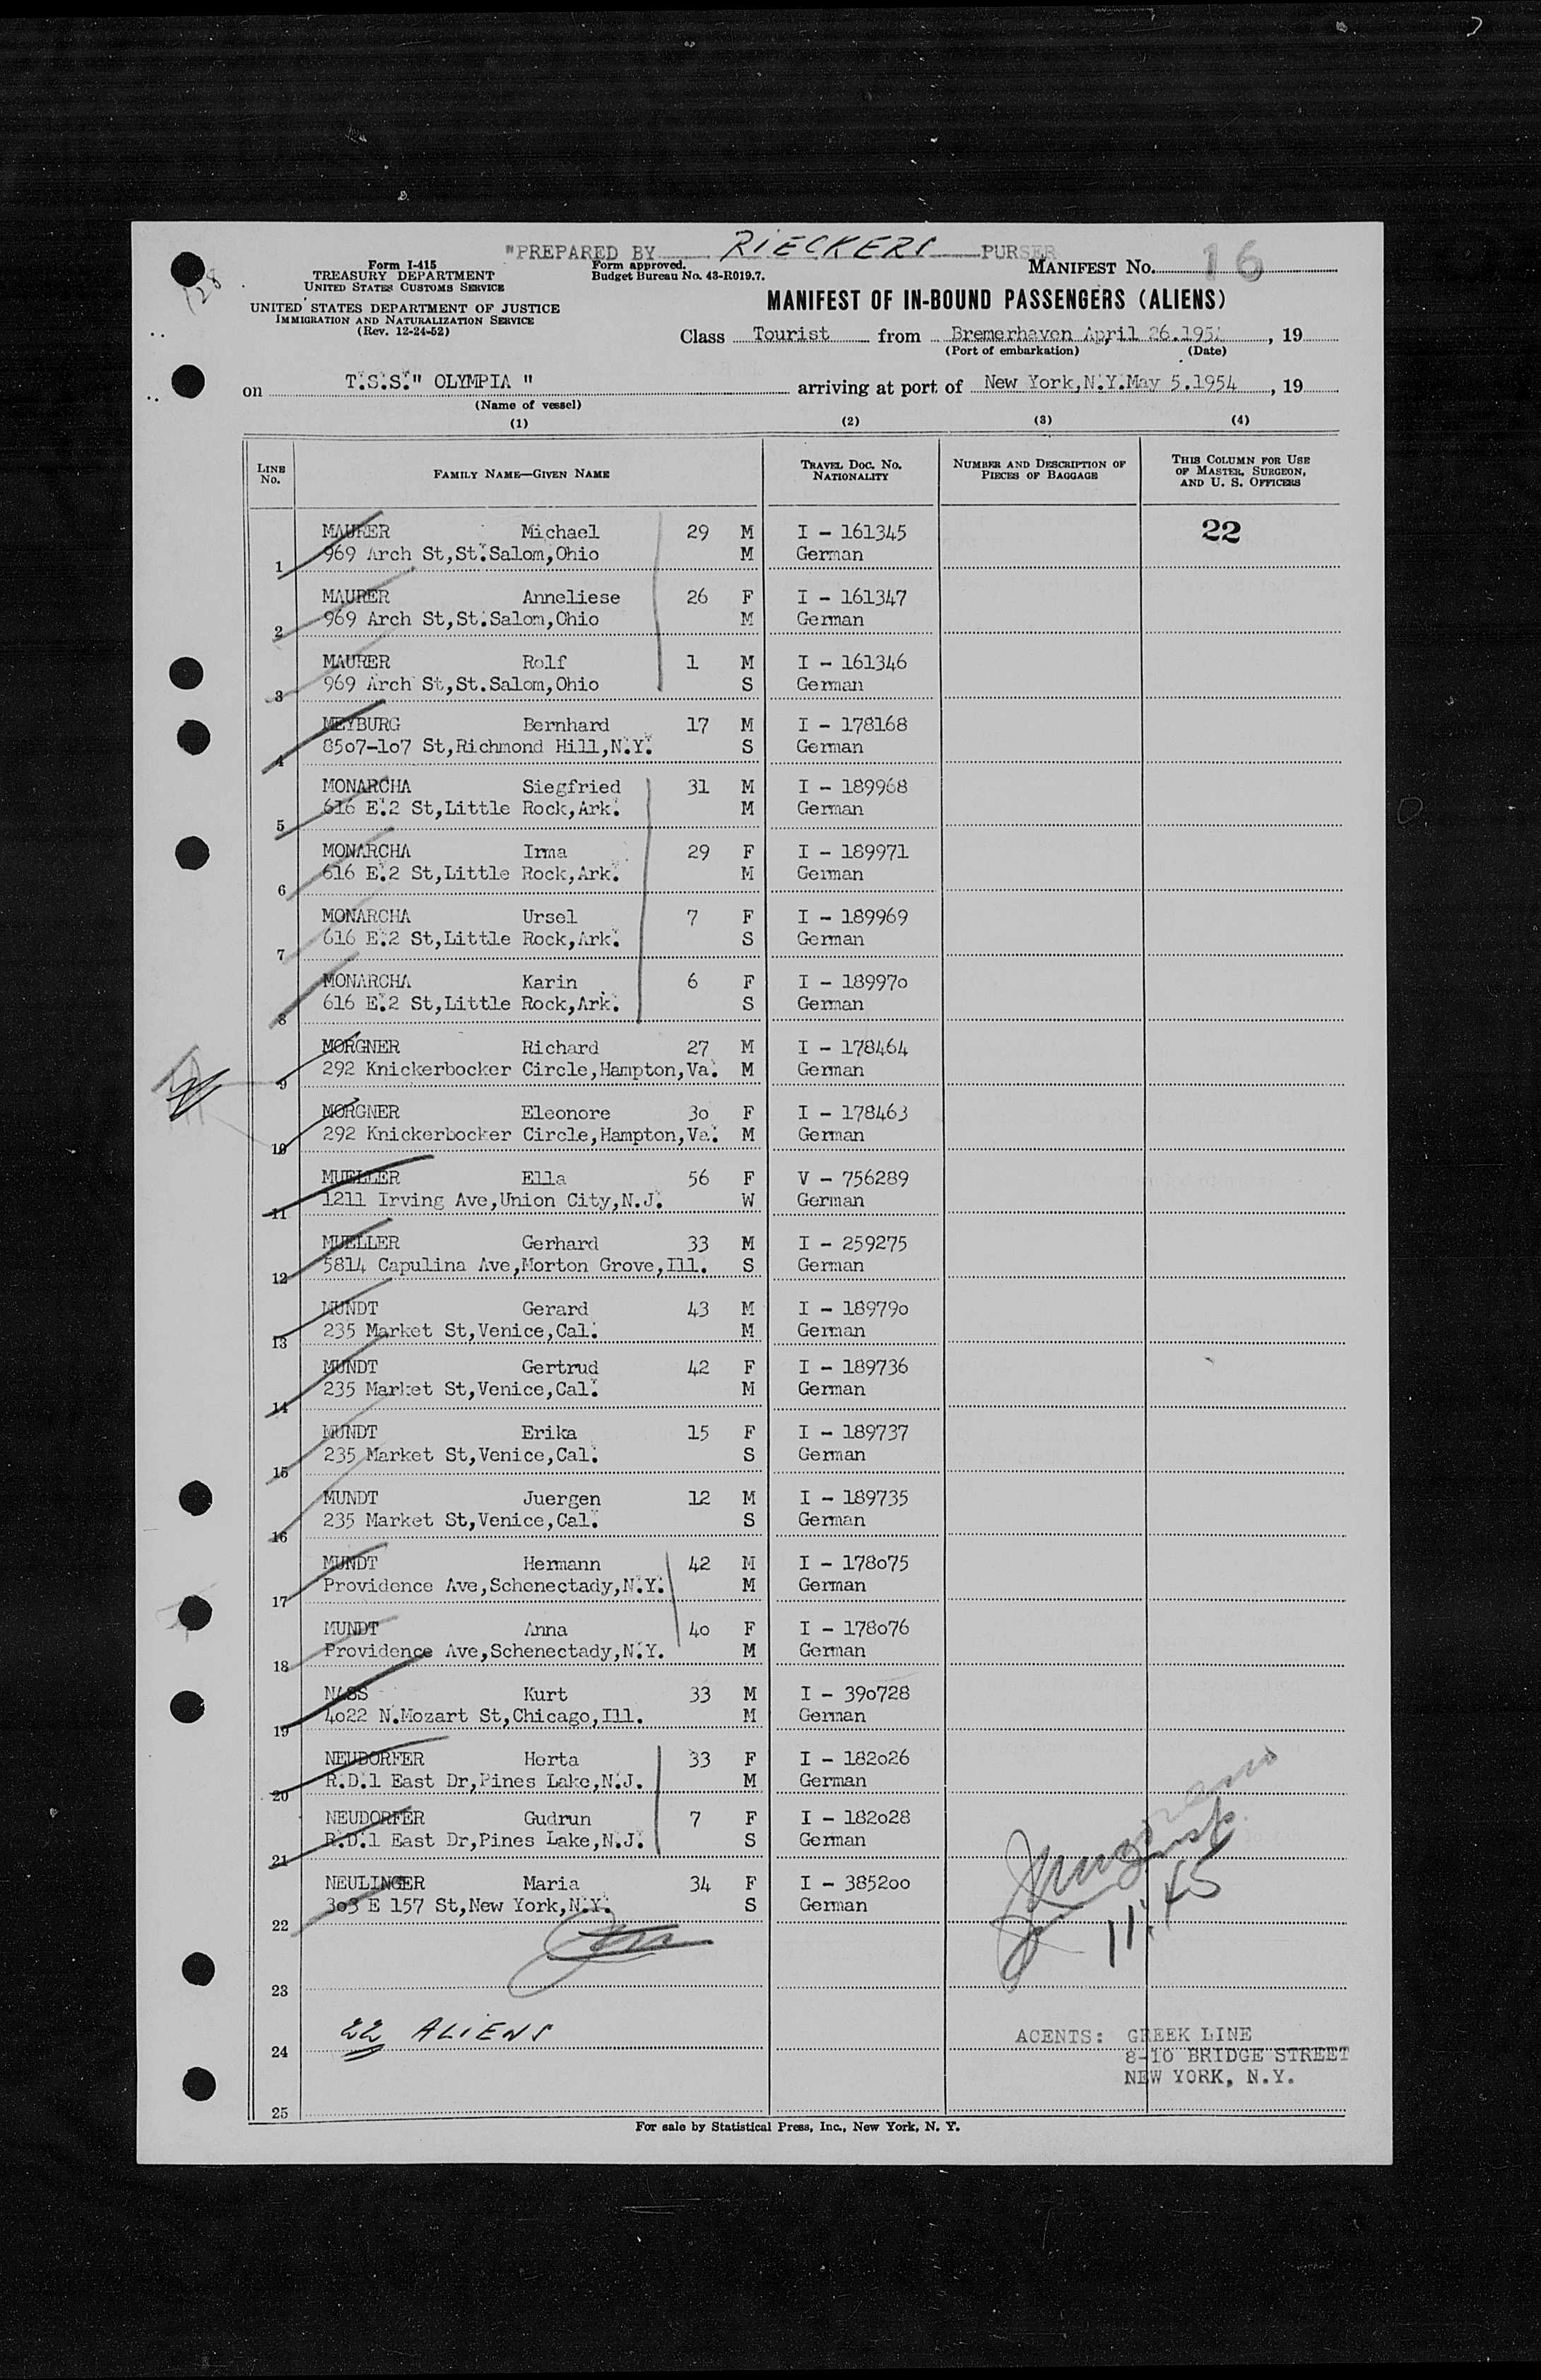 "PREPARED BY RIECKERS PURSER
Form I-415
TREASURY DEPARTMENT
UNITED STATES CUSTOMS SERVICE
UNITED STATES DEPARTMENT OF JUSTICE
IMMIGRATION AND NATURALIZATION SERVICE
(Rev. 12-24-52)
Form approved.
Budget Bureau No. 43-R019.7.
MANIFEST NO. 16
MANIFEST OF IN-BOUND PASSENGERS (ALIENS)
Class Tourist from Bremerhaven April 26.1954, 19
(Port of embarkation) (Date)
on T.S.S." OLYMPIA " arriving at port of New York,N.Y.May 5.1954, 19
(Name of vessel)
(1) (2) (3) (4)
LINE No. FAMILY NAME—GIVEN NAME TRAVEL DOC. NO. NATIONALITY NUMBER AND DESCRIPTION OF PIECES OF BAGGAGE THIS COLUMN FOR USE OF MASTER, SURGEON, AND U. S. OFFICERS
22
MAURER Michael 29 M I - 161345
1 969 Arch St,St.Salom,Ohio M German
MAURER Anneliese 26 F I - 161347
2 969 Arch St,St.Salom,Ohio M German
MAURER Rolf 1 M I - 161346
3 969 Arch St,St.Salom,Ohio S German
MEYBURG Bernhard 17 M I - 178168
4 8507-107 St,Richmond Hill,N.Y. S German
MONARCHA Siegfried 31 M I - 189968
5 616 E.2 St,Little Rock,Ark. M German
MONARCHA Irma 29 F I - 189971
6 616 E.2 St,Little Rock,Ark. M German
MONARCHA Ursel 7 F I - 189969
7 616 E.2 St,Little Rock,Ark. S German
MONARCHA Karin 6 F I - 189970
8 616 E.2 St,Little Rock,Ark. S German
MORGNER Richard 27 M I - 178464
9 292 Knickerbocker Circle,Hampton,Va. M German
MORGNER Eleonore 30 F I - 178463
10 292 Knickerbocker Circle,Hampton,Va. M German
MUELLER Ella 56 F V - 756289
11 1211 Irving Ave,Union City,N.J. W German
MUELLER Gerhard 33 M I - 259275
12 5814 Capulina Ave,Morton Grove,Ill. S German
MUNDT Gerard 43 M I - 189790
13 235 Market St,Venice,Cal. M German
MUNDT Gertrud 42 F I - 189736
14 235 Market St,Venice,Cal. M German
MUNDT Erika 15 F I - 189737
15 235 Market St,Venice,Cal. S German
MUNDT Juergen 12 M I - 189735
16 235 Market St,Venice,Cal. S German
MUNDT Hermann 42 M I - 178075
17 Providence Ave,Schenectady,N.Y. M German
MUNDT Anna 40 F I - 178076
18 Providence Ave,Schenectady,N.Y. M German
NASS Kurt 33 M I - 390728
19 4022 N.Mozart St,Chicago,Ill. M German
NEUDORFER Herta 33 F I - 182026
20 R.D.1 East Dr,Pines Lake,N.J. M German
NEUDORFER Gudrun 7 F I - 182028
21 R.D.1 East Dr,Pines Lake,N.J. S German
NEULINGER Maria 34 F I - 385200
22 303 E 157 St,New York,N.Y. S German
11:45
23
24 22 ALIENS
AGENTS: GREEK LINE
8-10 BRIDGE STREET
NEW YORK, N.Y.
25
For sale by Statistical Press, Inc., New York, N. Y.